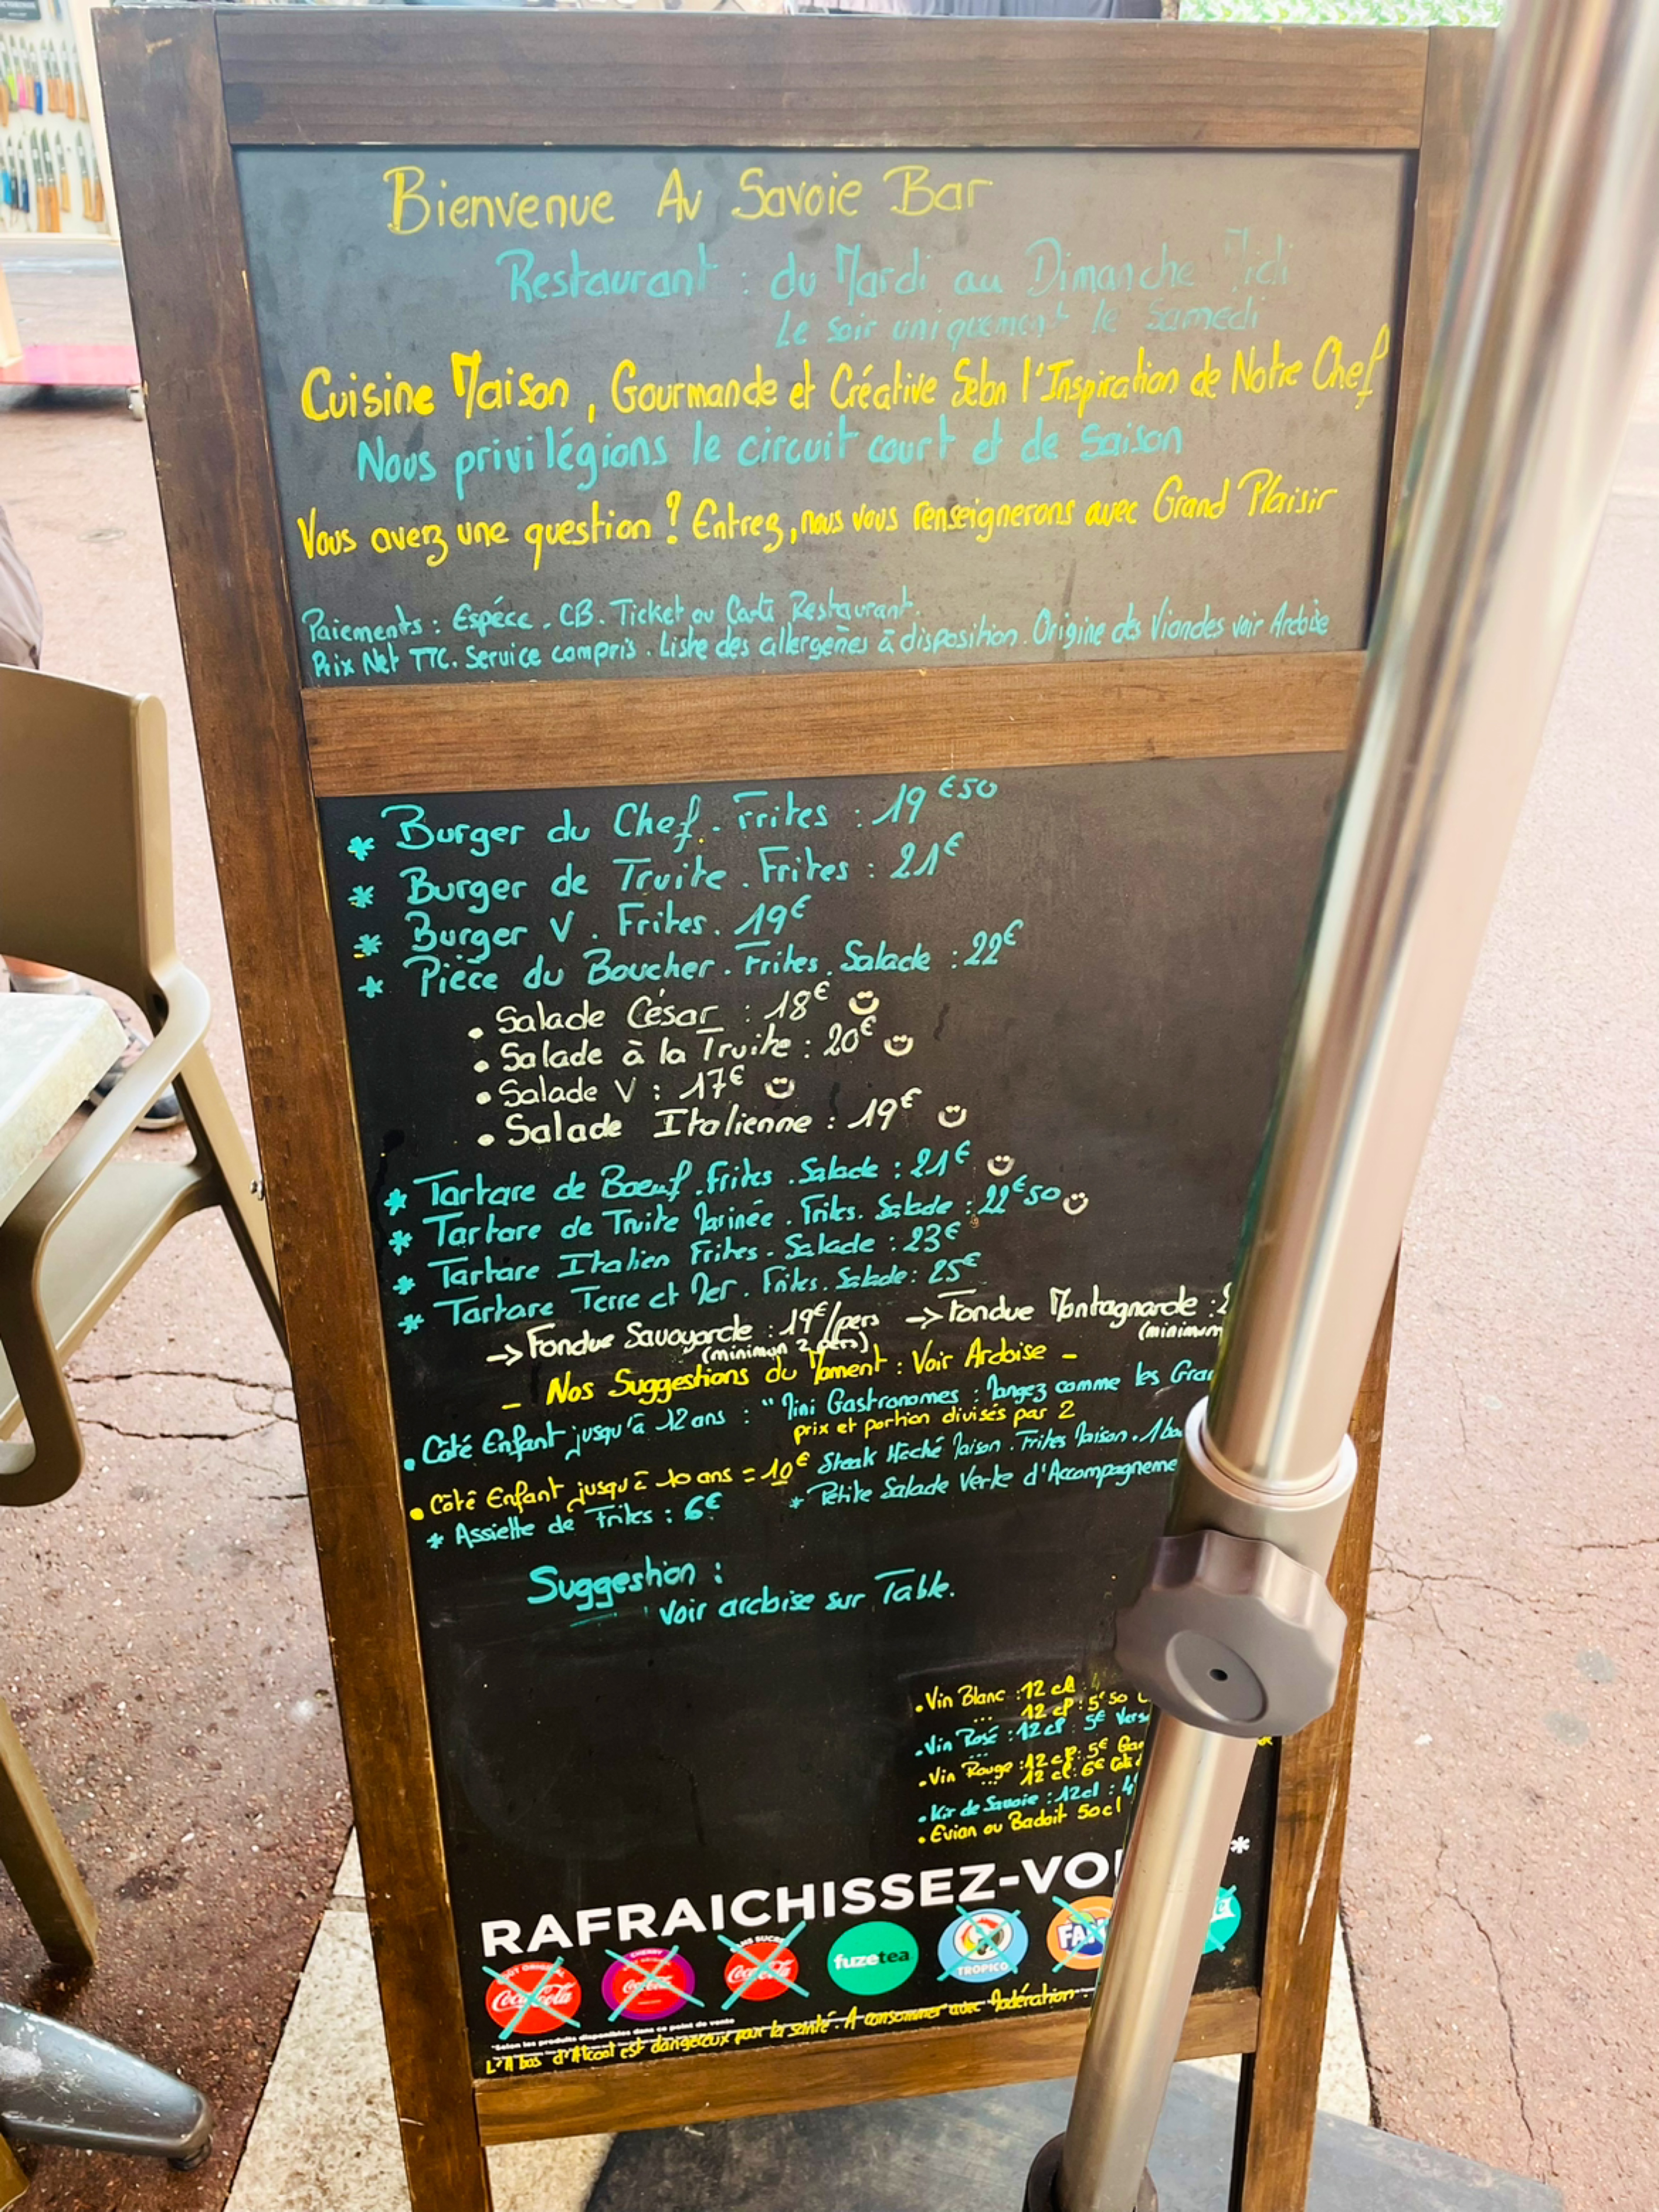 Bienvenue Au Savoie Bar
Restaurant : du Mardi au Dimanche Midi
Le soir uniquement le Samedi
Cuisine Maison, Gourmande et Créative Selon l'Inspiration de Notre Chef
Nous privilégions le circuit court et de Saison
Vous avez une question ? Entrez, nous vous renseignerons avec Grand Plaisir
Paiements : Espéce . CB . Ticket ou Carte Restaurant.
Prix Net TTC . Service compris . Liste des allergenes à disposition . Origine des Viandes voir Ardoise
* Burger du Chef . Frites : 19€50
* Burger de Truite . Frites : 21€
* Burger V . Frites . 19€
* Pièce du Boucher . Frites . Salade : 22€
• Salade César : 18€
• Salade à la Truite : 20€
• Salade V : 17€
• Salade Italienne : 19€
* Tartare de Boeuf . Frites . Salade : 21€
* Tartare de Truite Marinée . Frites . Salade : 22€50
* Tartare Italien Frites . Salade : 23€
* Tartare Terre et Mer . Frites . Salade : 25€
→ Fondue Savoyarde : 19€/pers → Fondue Montagnarde :
(minimun 2 pers) (minimum
_ Nos Suggestions du Moment : Voir Ardoise _
• Côté Enfant jusqu'à 12 ans : " Mini Gastronomes : Mangez comme les
prix et portion divisés par 2
• Côté Enfant jusqu'à 10 ans = 10€ Steak Haché Maison . Frites Maison . 1
* Assiette de Frites : 6€ * Petite Salade Verte d'Accompagneme
Suggestion :
Voir ardoise sur Table.
• Vin Blanc : 12 cl
... 12 cl : 5€50
• Vin Rosé : 12 cl : 5€
...
• Vin Rouge : 12 cl : 5€
... 12 cl : 6€
• Kir de Savoie : 12cl : 4
• Evian ou Badoit 50cl
RAFRAICHISSEZ-VO *
Coca-Cola
CHERRY
SANS SUCRES Coca-Cola
fuzetea
TROPICO
FAN
*Selon les produits disponibles dans ce point de vente
L'Abus d'Alcool est dangereux pour la santé . A consommer avec Modération .